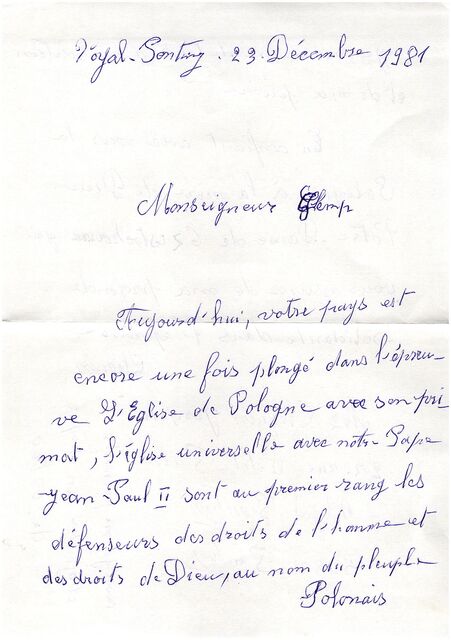 Noyal-Pontivy . 23 Décembre 1981
Monseigneur Glemp
Aujourd'hui, votre pays est
encore une fois plongé dans l'épreu-
ve L'Eglise de Pologne avec son pri
mat, l'église universelle avec notre Pape
Jean-Paul II sont au premier rang les
défenseurs des droits de l'homme et
des droits de Dieu, au nom du pleuple
Polonais